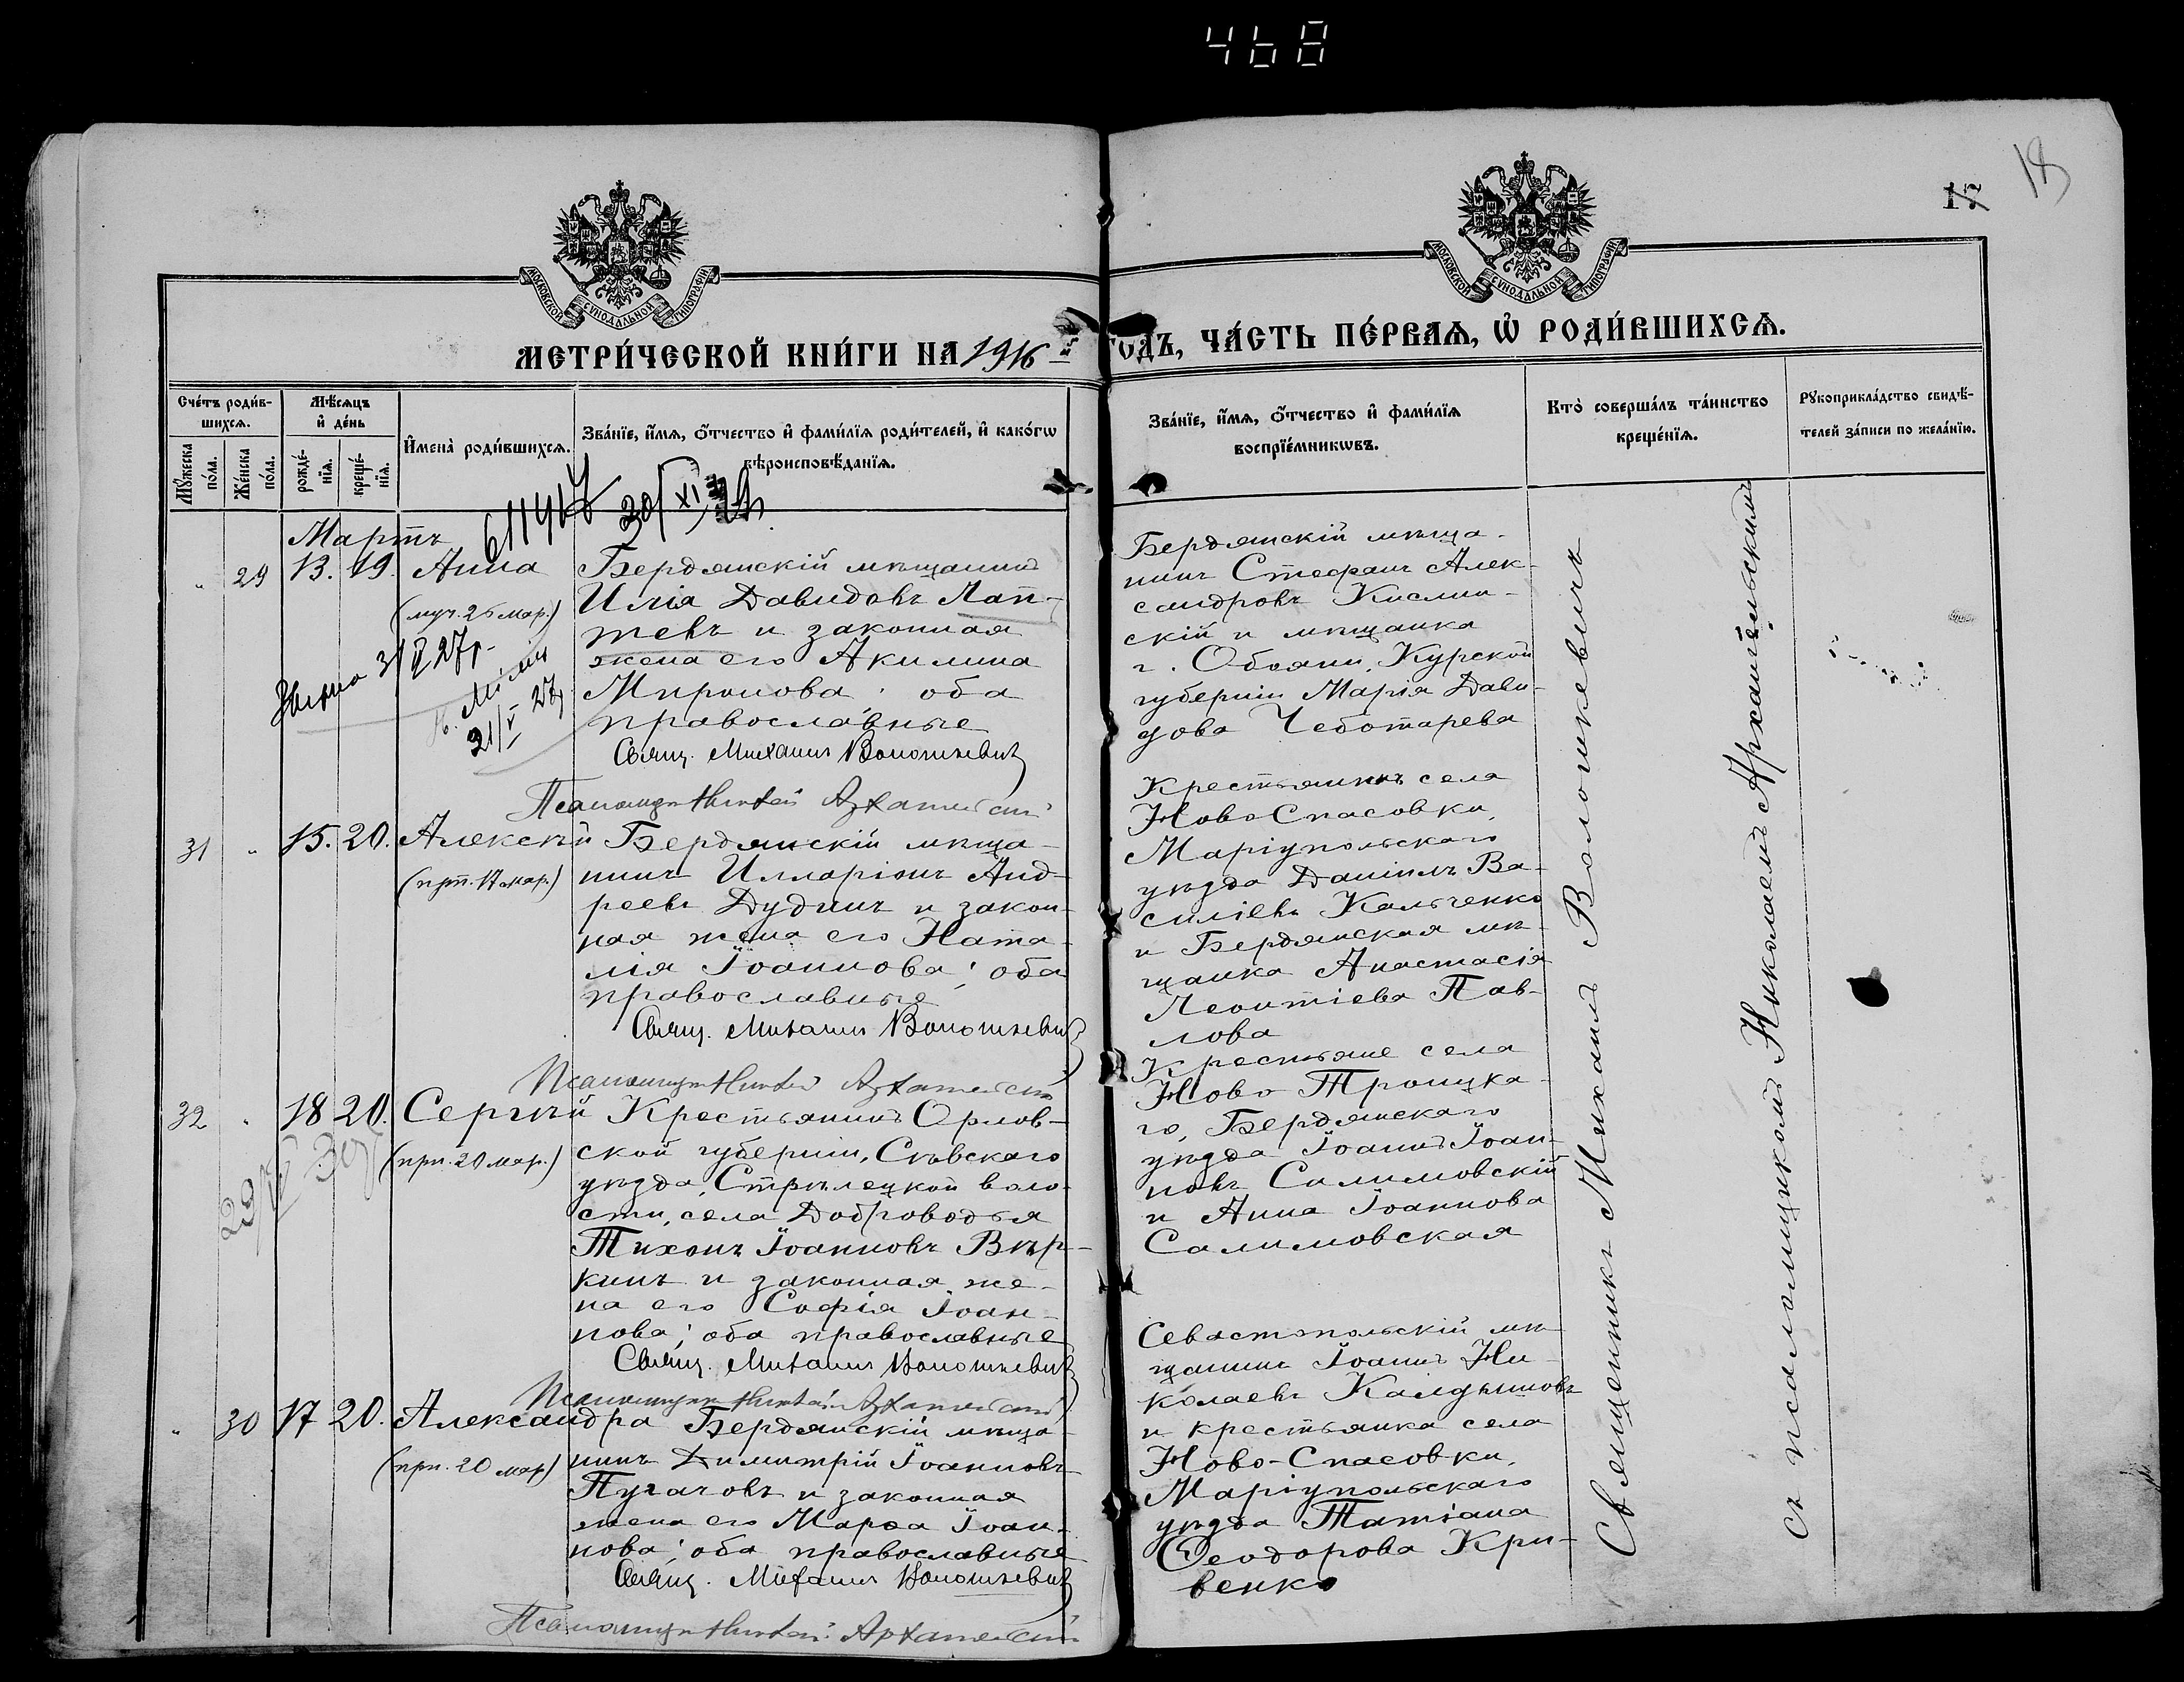 468
17
18
МОСКОВСКОЙ СѴНОДАЛЬНОЙ ТИПОГРАФІИ
МОСКОВСКОЙ СѴНОДАЛЬНОЙ ТИПОГРАФІИ
МЕТРИ́ЧЕСКОЙ КНИ́ГИ НА 1916 й ГОДЪ, ЧА́СТЬ ПЕ́РВАѦ, Ѡ҆ РОДИ́ВШИХСѦ.
Сче́тъ роди́в-
шихсѧ.
Мꙋ́жеска по́ла.
Же́нска по́ла.
Мѣ́сѧцъ
и҆ де́нь
рожде́-
нїѧ.
креще́-
нїѧ.
И҆мена̀ роди́вшихсѧ.
Зва́нїе, и҆́мѧ, ѻ҆́тчество и҆ фами́лїѧ роди́телей, и҆ како́гѡ
вѣроисповѣ́данїѧ.
Зва́нїе, и҆́мѧ, ѻ҆́тчество и҆ фами́лїѧ
воспрїе́мникѡвъ.
Кто̀ соверша́лъ та́инство
креще́нїѧ.
Рꙋкоприкла́дство свидѣ́-
телей за́писи по жела́нїю.
Мартъ
" 29 13. 19. Анна
(муч. 26 мар.)
21/V 27
Бердянскій мѣщанинъ
Илія Давидовъ Лап-
тевъ и законная
жена его Акилина
Миронова; оба
православные
Свящ. Михаилъ Волошкевичъ
Псаломщикъ Николай Архангельскій
Бердянскій мѣща-
нинъ Стефанъ Алек-
сандровъ Кислин-
скій и мѣщанка
г. Обояни, Курской
губерніи Марія Дави-
дова Чеботарева
31 " 15. 20. Алексѣй
(прп. 17 мар.)
Бердянскій мѣща-
нинъ Илларіонъ Анд-
реевъ Дудинъ и закон-
ная жена его Ната-
лія Іоаннова; оба
православные
Свящ. Михаилъ Волошкевичъ
Псаломщикъ Николай Архангельскій
Крестьянинъ села
Ново Спасовки,
Маріупольскаго
уѣзда Даніилъ Ва-
силіевъ Кальченко
и Бердянская мѣ-
щанка Анастасія
Леонтіева Пав-
лова
32 " 18 20. Сергѣй
(прп. 20 мар.)
Крестьянинъ Орлов-
ской губерніи, Сѣвскаго
уѣзда, Стрѣлецкой воло-
сти, села Добриводья
Тихонъ Іоанновъ Вѣр-
кинъ и законная же-
на его Софія Іоан-
нова; оба православные
Свящ. Михаилъ Волошкевичъ
Псаломщикъ Николай Архангельскій
Крестьяне села
Ново Троицка-
го, Бердянскаго
уѣзда Іоаннъ Іоан-
новъ Салимовскій
и Анна Іоаннова
Салимовская
" 30 17 20. Александра
(прп. 20 мар)
Бердянскій мѣща-
нинъ Димитрій Іоанновъ
Пугачовъ и законная
жена его Марѳа Іоан-
нова; оба православные
Свящ. Михаилъ Волошкевичъ
Псаломщикъ Николай Архангельскій
Севастопольскій мѣ-
щанинъ Іоаннъ Ни-
колаевъ
и крестьянка села
Ново-Спасовки,
Маріупольскаго
уѣзда Татіана
Ѳеодорова Кри-
венко
Священникъ Михаилъ Волошкевичъ
съ псаломщикомъ Николаемъ Архангельскимъ